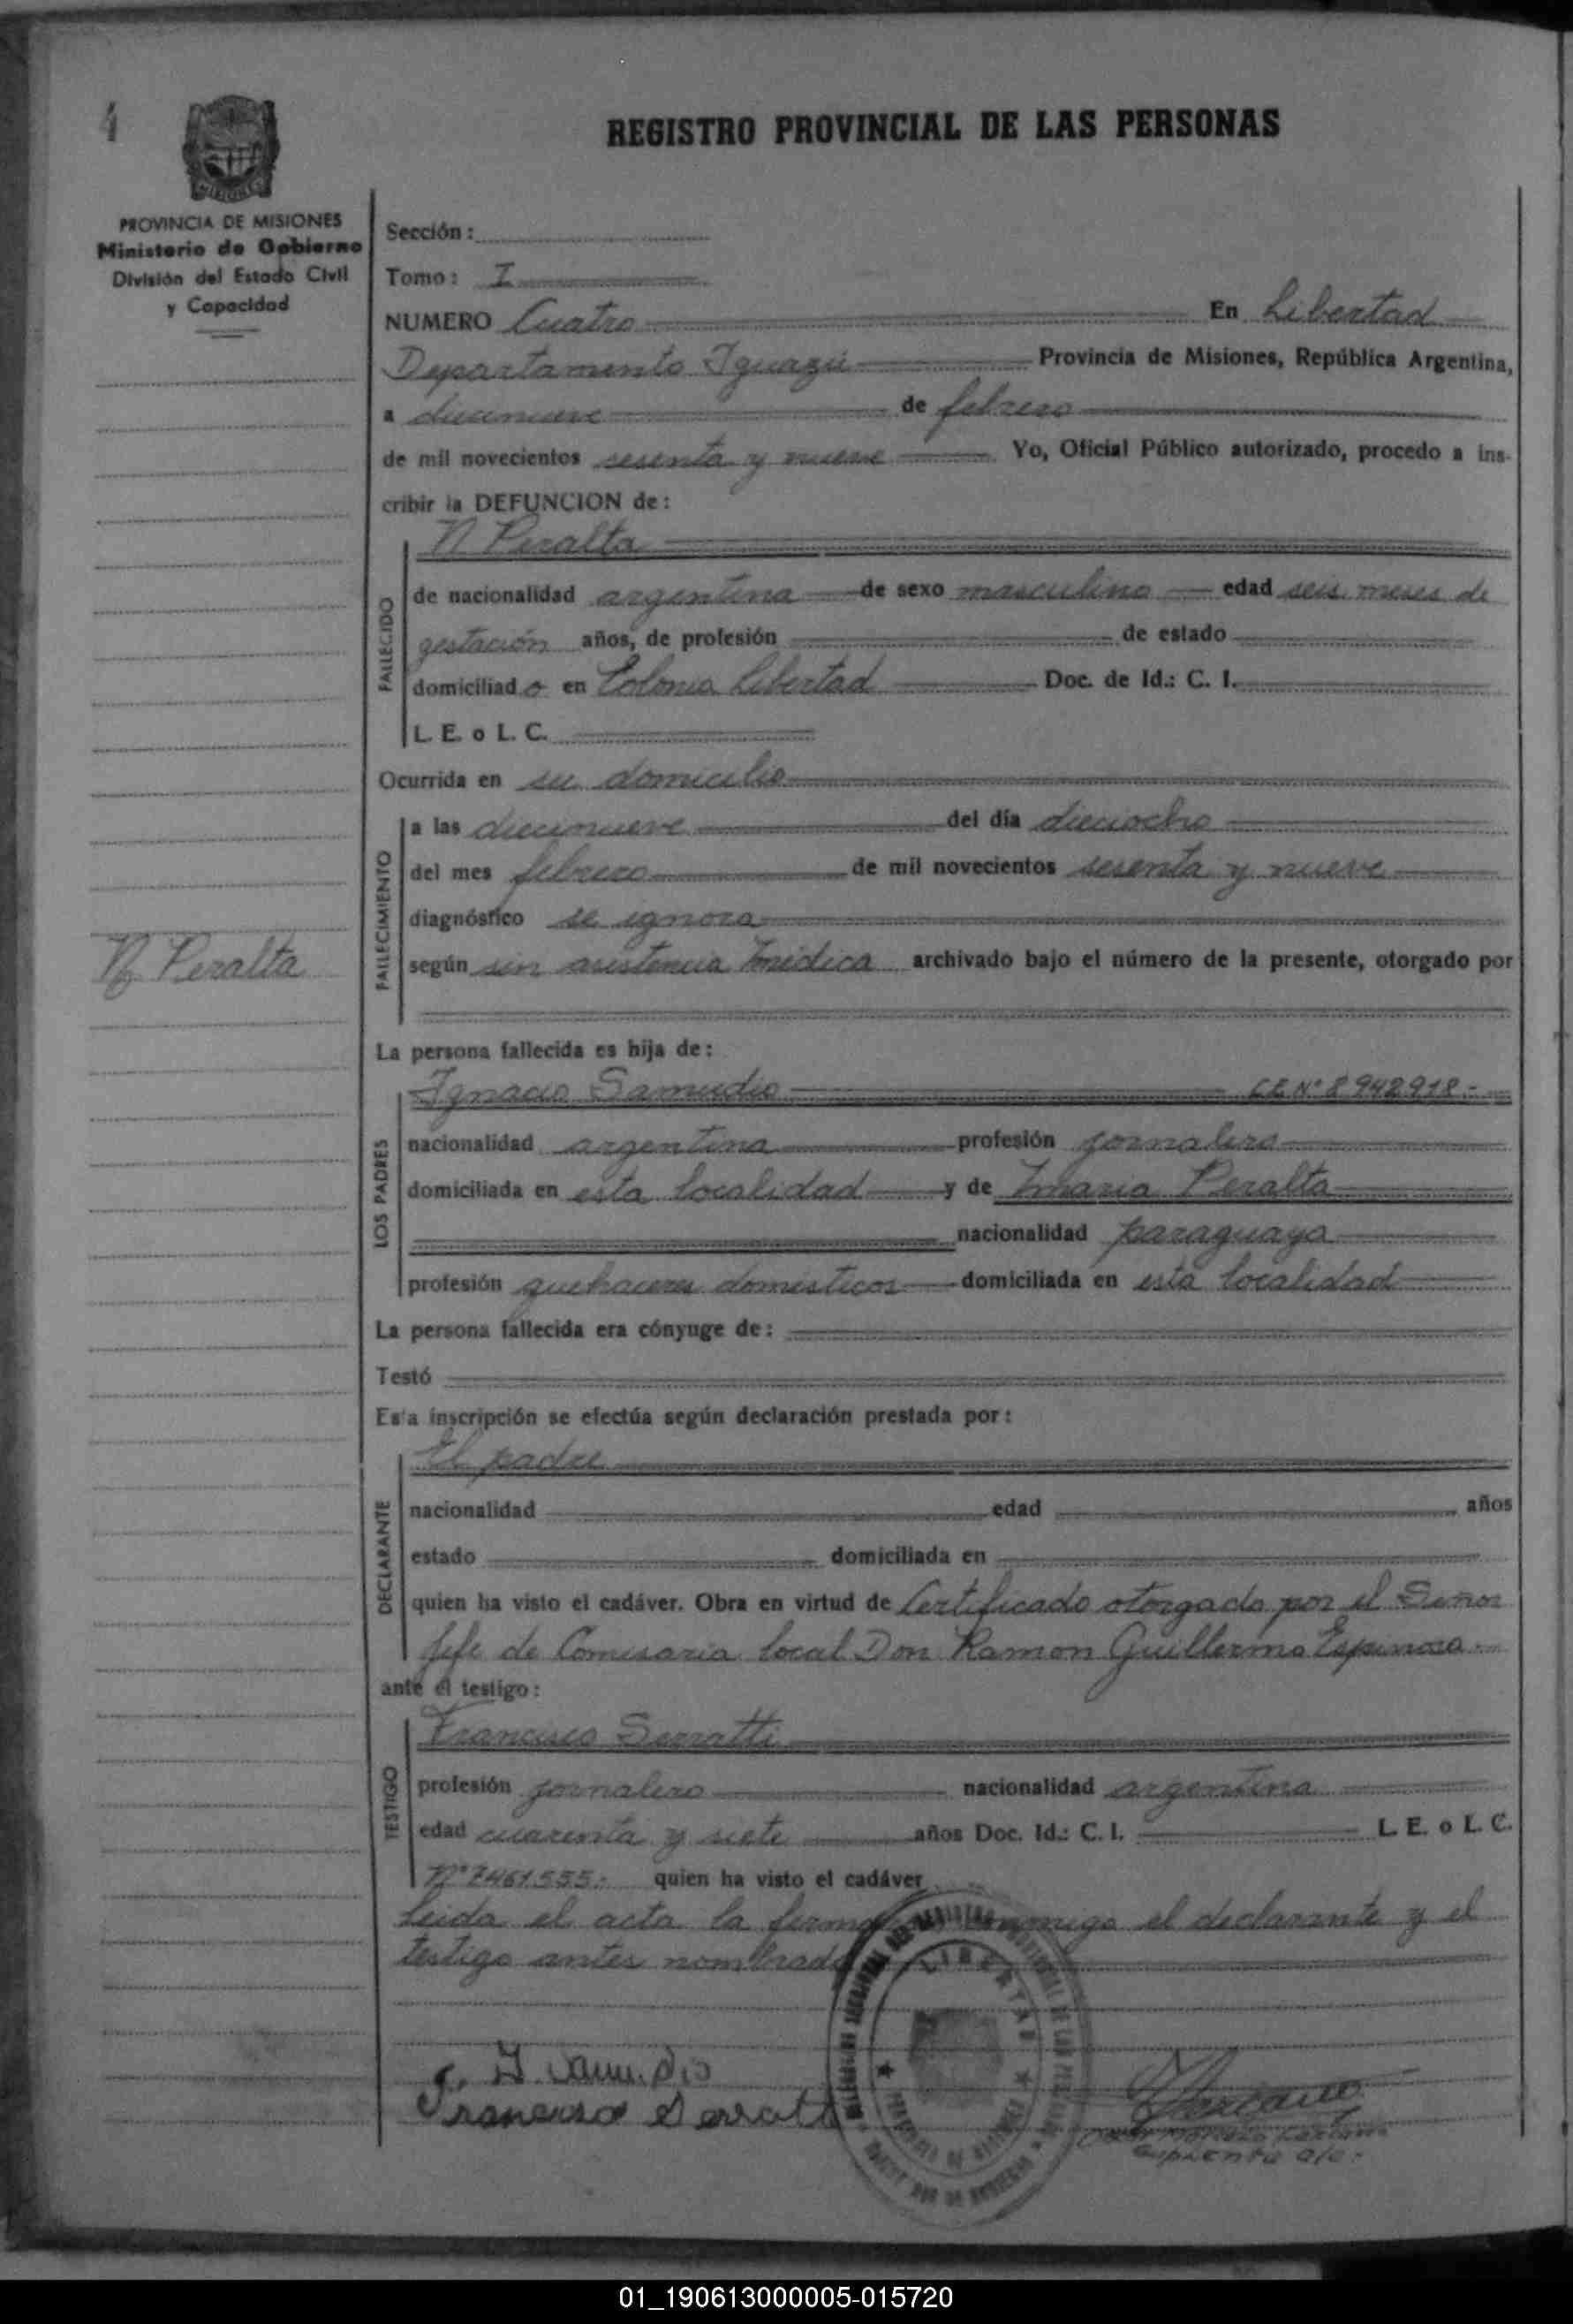 4
REGISTRO PROVINCIAL DE LAS PERSONAS
PROVINCIA DE MISIONES
Ministerio de Gobierno
División del Estado Civil
y Capacidad
Sección:
Tomo: I
NUMERO Cuatro En Libertad
Departamento Iguazú Provincia de Misiones, República Argentina,
a diecinueve de febrero
de mil novecientos sesenta y nueve Yo, Oficial Público autorizado, procedo a ins-
cribir la DEFUNCION de:
N Peralta
FALLECIDO
de nacionalidad argentina de sexo masculino edad seis meses de
gestación años, de profesión de estado
domiciliado en Colonia Libertad Doc. de Id.: C. I.
L. E. o L. C.
Ocurrida en su domicilio
FALLECIMIENTO
a las diecinueve del día dieciocho
del mes febrero de mil novecientos sesenta y nueve
diagnóstico se ignora
N Peralta
según sin asistencia médica archivado bajo el número de la presente, otorgado por
La persona fallecida es hija de:
LOS PADRES
Ignacio Samudio L.E. Nº 8942918.-
nacionalidad argentina profesión jornalero
domiciliada en esta localidad y de María Peralta
nacionalidad paraguaya
profesión quehaceres domésticos domiciliada en esta localidad
La persona fallecida era cónyuge de:
Testó
Esta inscripción se efectúa según declaración prestada por:
DECLARANTE
El padre
nacionalidad edad años
estado domiciliada en
quien ha visto el cadáver. Obra en virtud de Certificado otorgado por el Señor
Jefe de Comisaria local Don Ramon Guillermo Espinosa.-
ante el testigo:
TESTIGO
Francisco Serratti
profesión jornalero nacionalidad argentina
edad cuarenta y siete años Doc. Id.: C. I. L. E. o L. C.
Nº 7461555.- quien ha visto el cadáver
Leida el acta la firman conmigo el declarante y el
testigo antes nombrado
LIBERTAD
I Samudio
Francisco Serratti
suplente a/c.
01_190613000005-015720